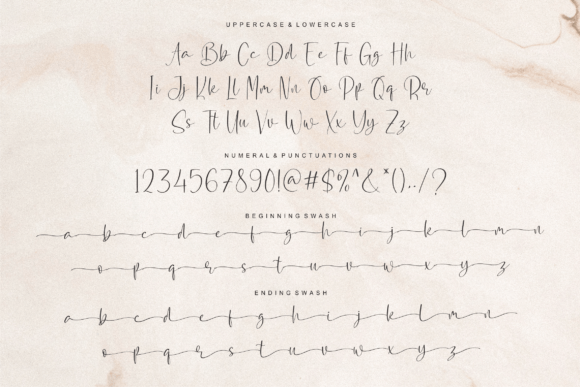 UPPERCASE & LOWERCASE
Aa Bb Cc Dd Ee Ff Gg Hh
Ii Jj Kk Ll Mm Nn Oo Pp Qq Rr
Ss Tt Uu Vv Ww Xx Yy Zz
NUMERAL & PUNCTUATIONS
1234567890!@#$%^&*()../?
BEGINNING SWASH
a b c d e f g h i j k l m n
o p q r s t u v w x y z
ENDING SWASH
a b c d e f g h i j k l m n
o p q r s t u v w x y z